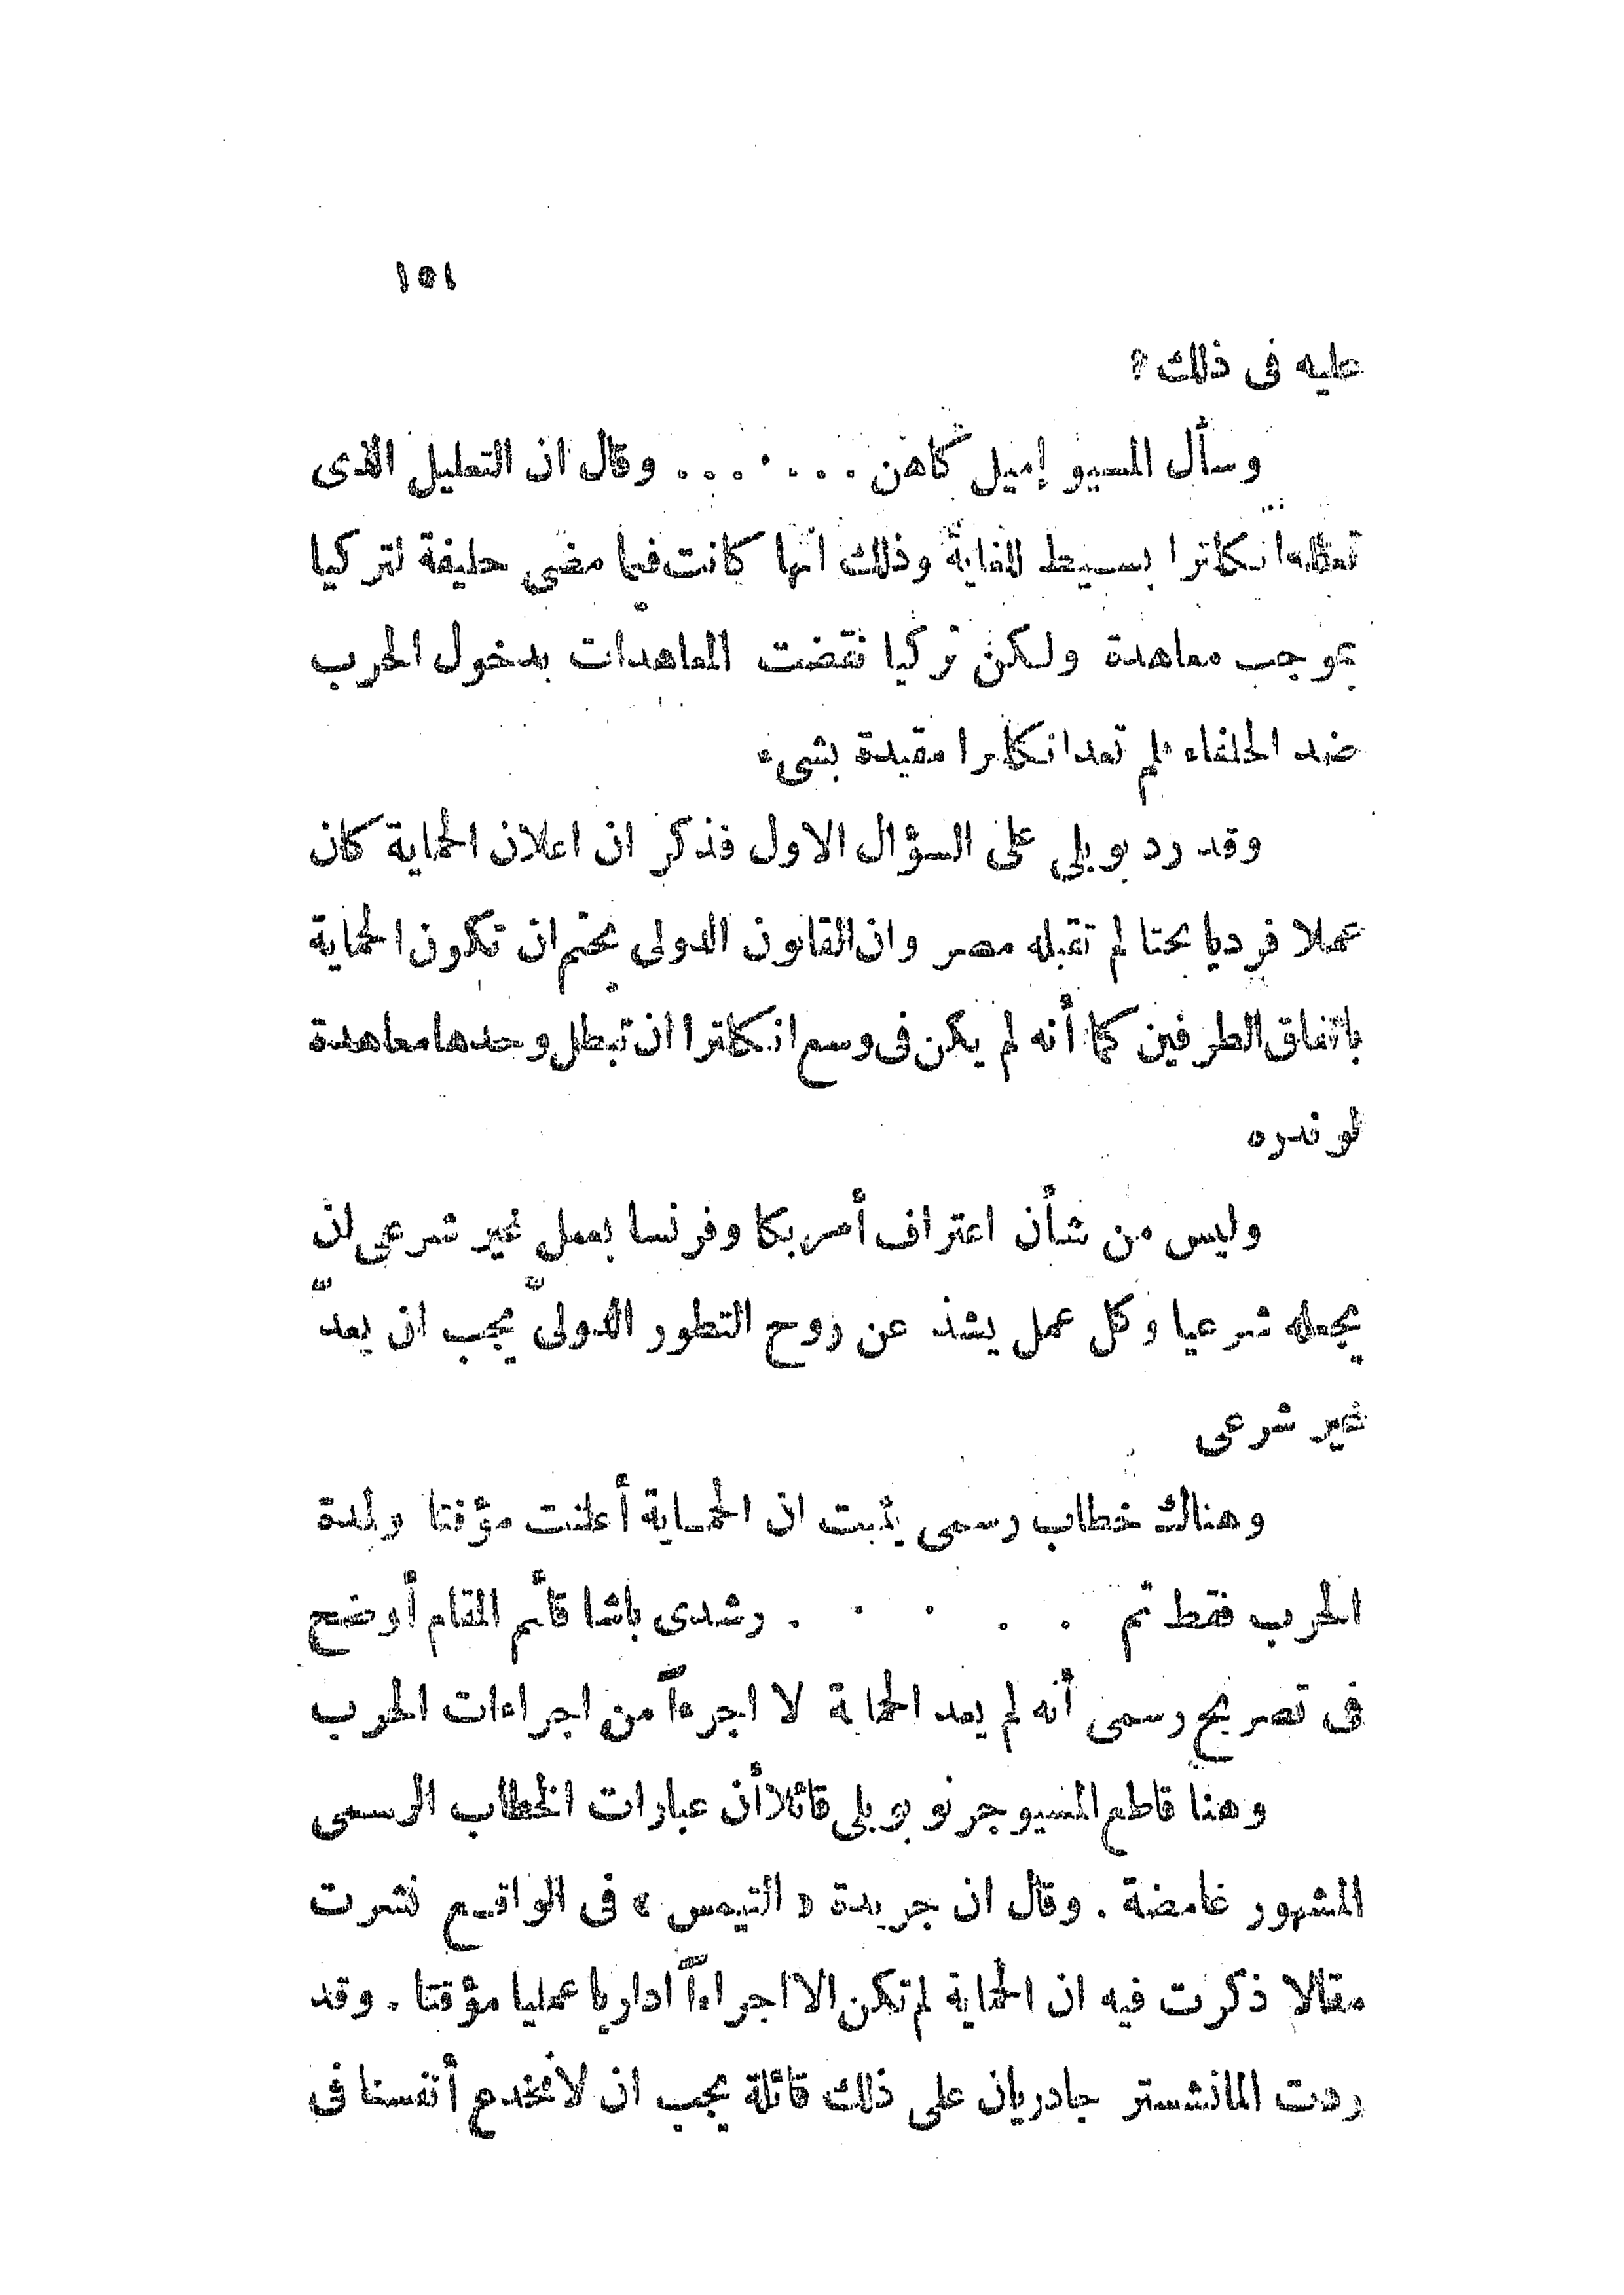 ١٥١
عليه فى ذلك؟
وسأل المسيو إميل كاهن ....... وقال ان التعليل الذى
تعلله انكلترا بسيط للغاية وذلك انها كانت فيما مضى حليفة لتركيا
بموجب معاهدة ولكن تركيا نقضت المعاهدات بدخول الحرب
ضد الحلفاء فلم تعد انكلترا مقيدة بشىء
وقد رد بويلى على السؤال الاول فذكر ان اعلان الحماية كان
عملا فرديا بحتا لم تقبله مصر وان القانون الدولى يحتم ان تكون الحماية
باتفاق الطرفين كما أنه لم يكن فى وسع انكلترا ان تبطل وحدها معاهدة
لوندره
وليس من شأن اعتراف أمريكا وفرنسا بعمل غير شرعى ان
يجعله شرعيا وكل عمل يشذ عن روح التطور الدولىّ يجب ان يعدّ
غير شرعى
وهناك خطاب رسمى يثبت ان الحماية أعلنت مؤقتا ولمدة
الحرب فقط ثم . . . . . رشدى باشا قائم المقام أوضح
فى تصريح رسمى أنه لم يعد الحماية لا اجرءاً من اجراءات الحرب
وهنا قاطع المسيو جرنو بويلى قائلا أن عبارات الخطاب الرسمى
المشهور غامضة . وقال ان جريدة « التيمس » فى الواقع نشرت
مقالا ذكرت فيه ان الحماية لم تكن الا اجراءاً اداريا عمليا مؤقتا . وقد
ردت المانشستر جادريان على ذلك قائلة يجب ان لا نخدع أنفسنا فى